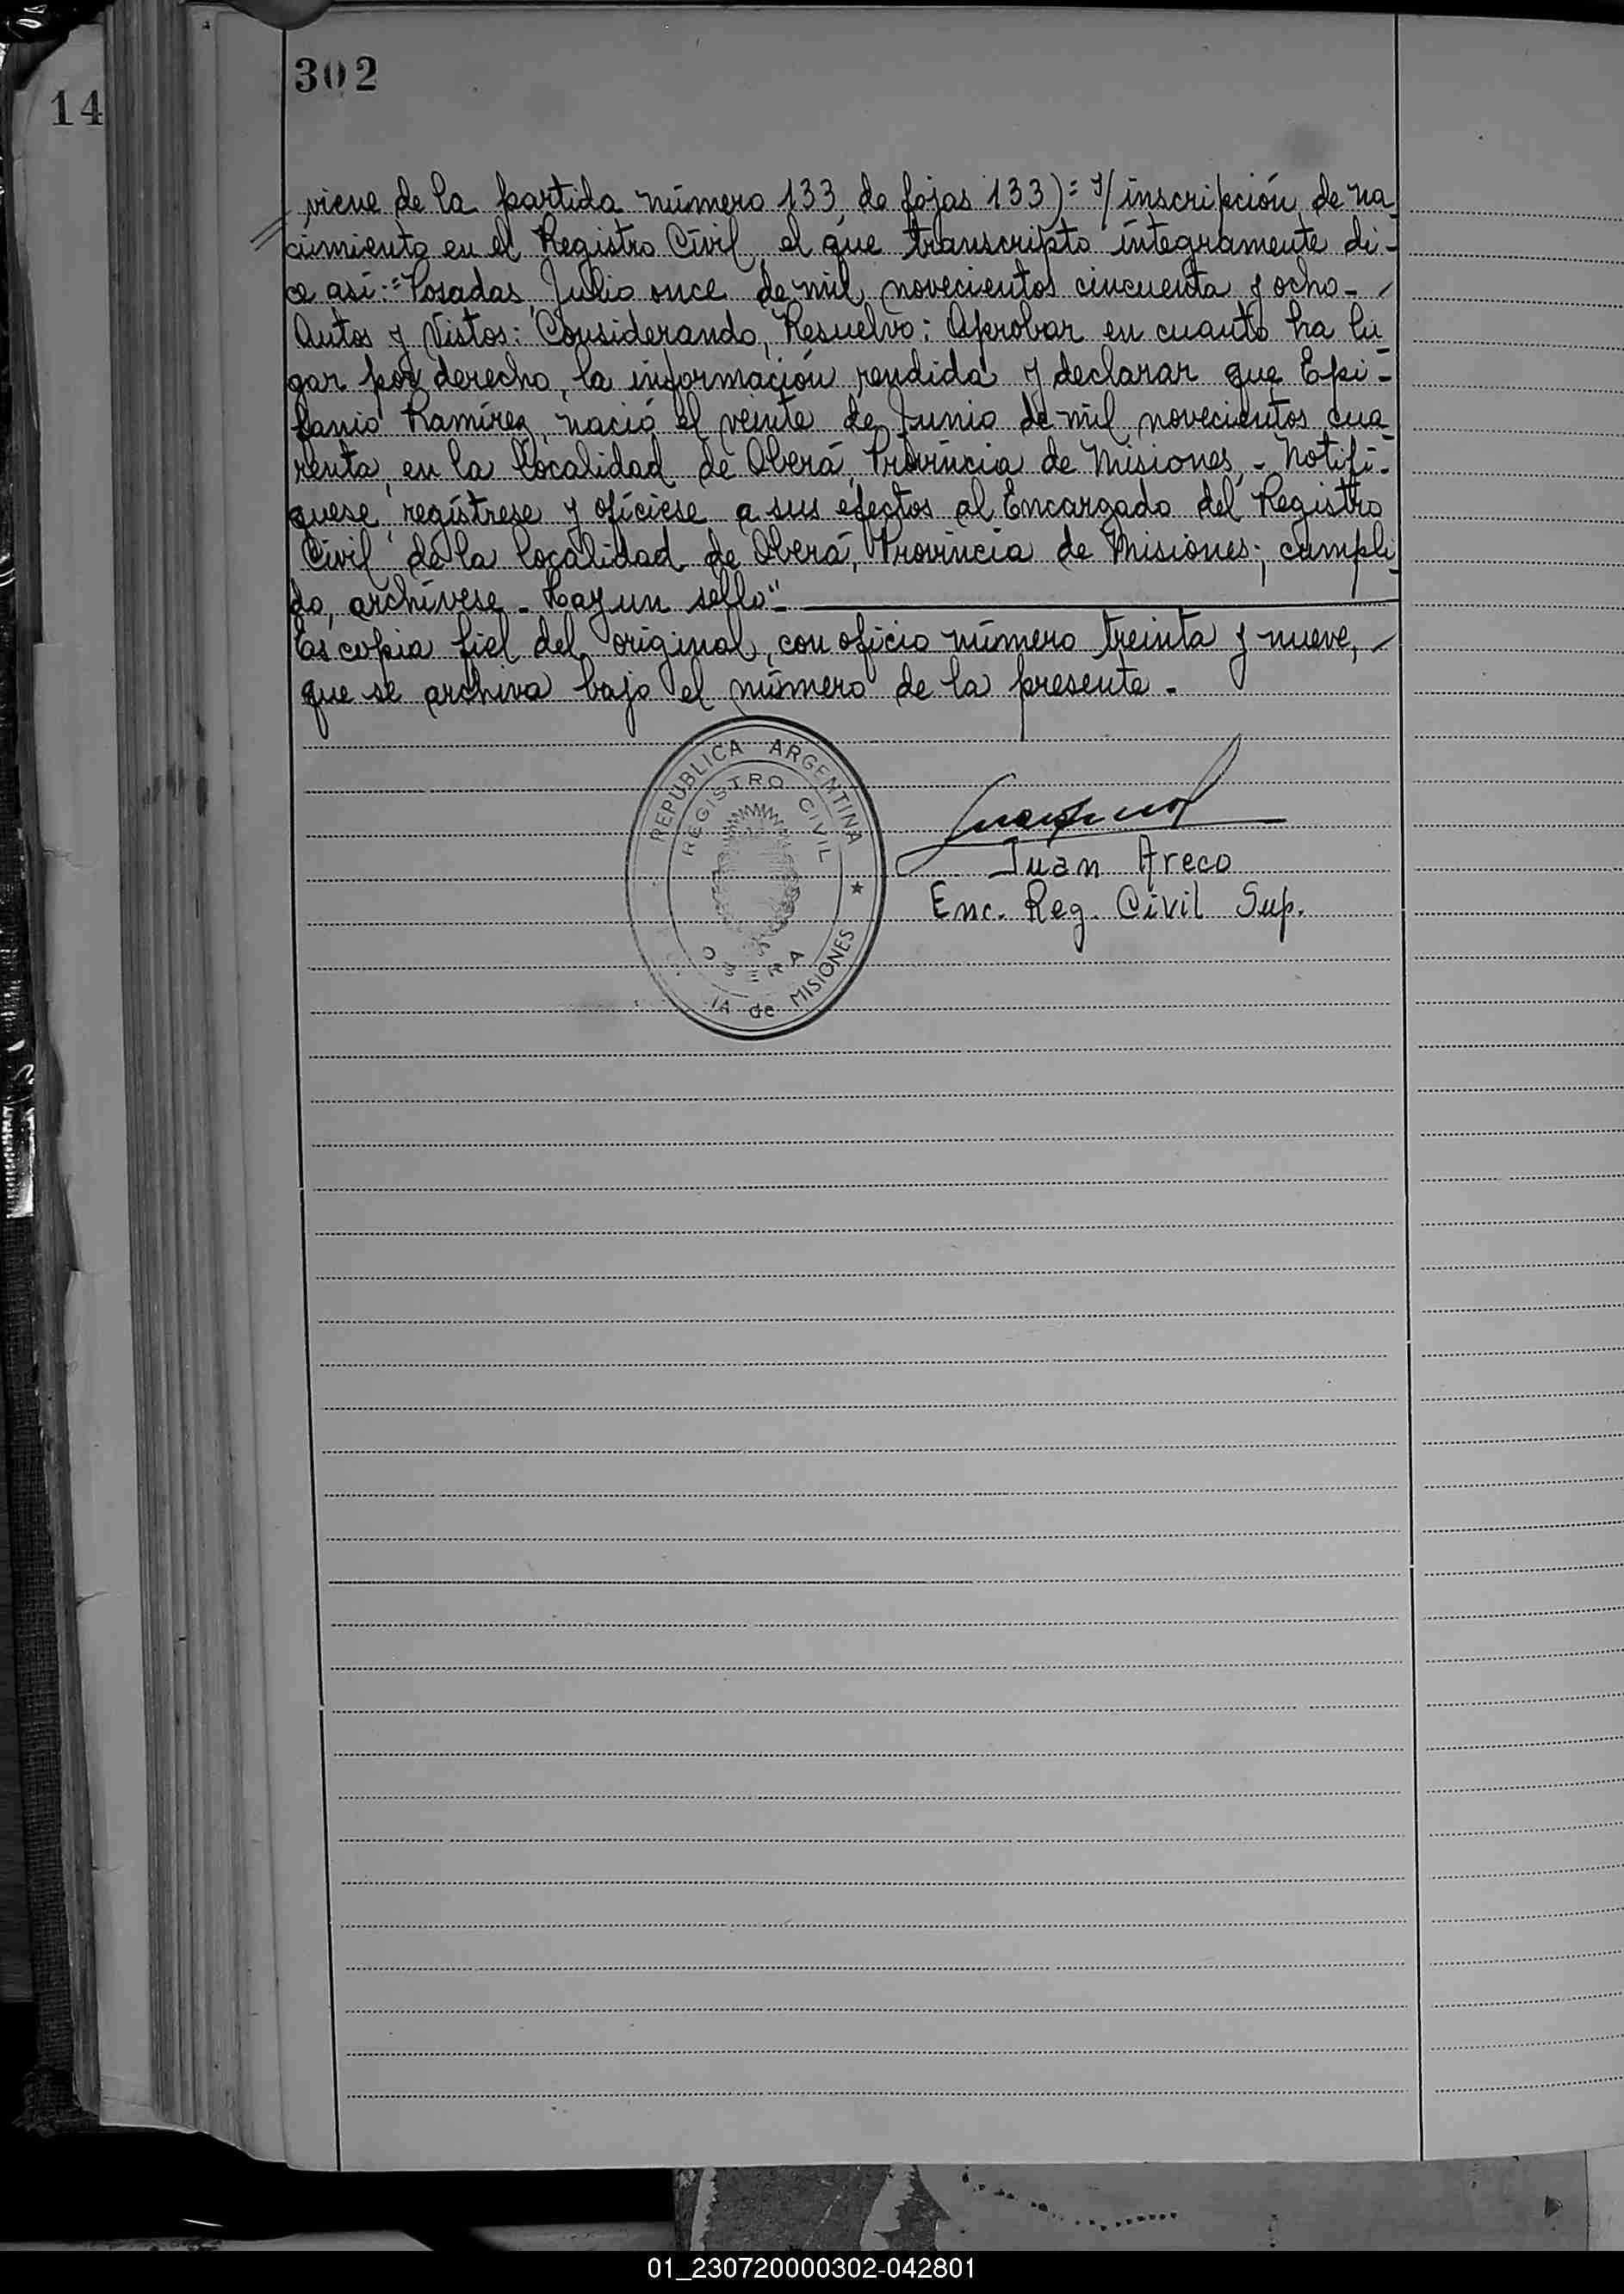 302
14
viene de la partida número 133 de fojas 133)= s/ inscripción de na-
cimiento en el Registro Civil, el que transcripto íntegramente di-
ce así:="Posadas, Julio once de mil novecientos cincuenta y ocho-
Autos y Vistos: Considerando, Resuelvo: Aprobar en cuanto ha lu-
gar por derecho, la información rendida y declarar que Epi-
fanio Ramírez, nació el veinte de Junio de mil novecientos cua-
renta, en la localidad de Oberá, Provincia de Misiones.- Notifí-
quese, regístrese y ofíciese a sus efectos al Encargado del Registro
Civil de la localidad de Oberá, Provincia de Misiones; cumpli-
do, archívese.- Hay un sello".-
Es copia fiel del original, con oficio número treinta y nueve,
que se archiva bajo el número de la presente.-
REPUBLICA ARGENTINA
REGISTRO CIVIL
OBERA
IA de MISIONES
Juan Areco
Enc. Reg. Civil Sup.
01_230720000302-042801